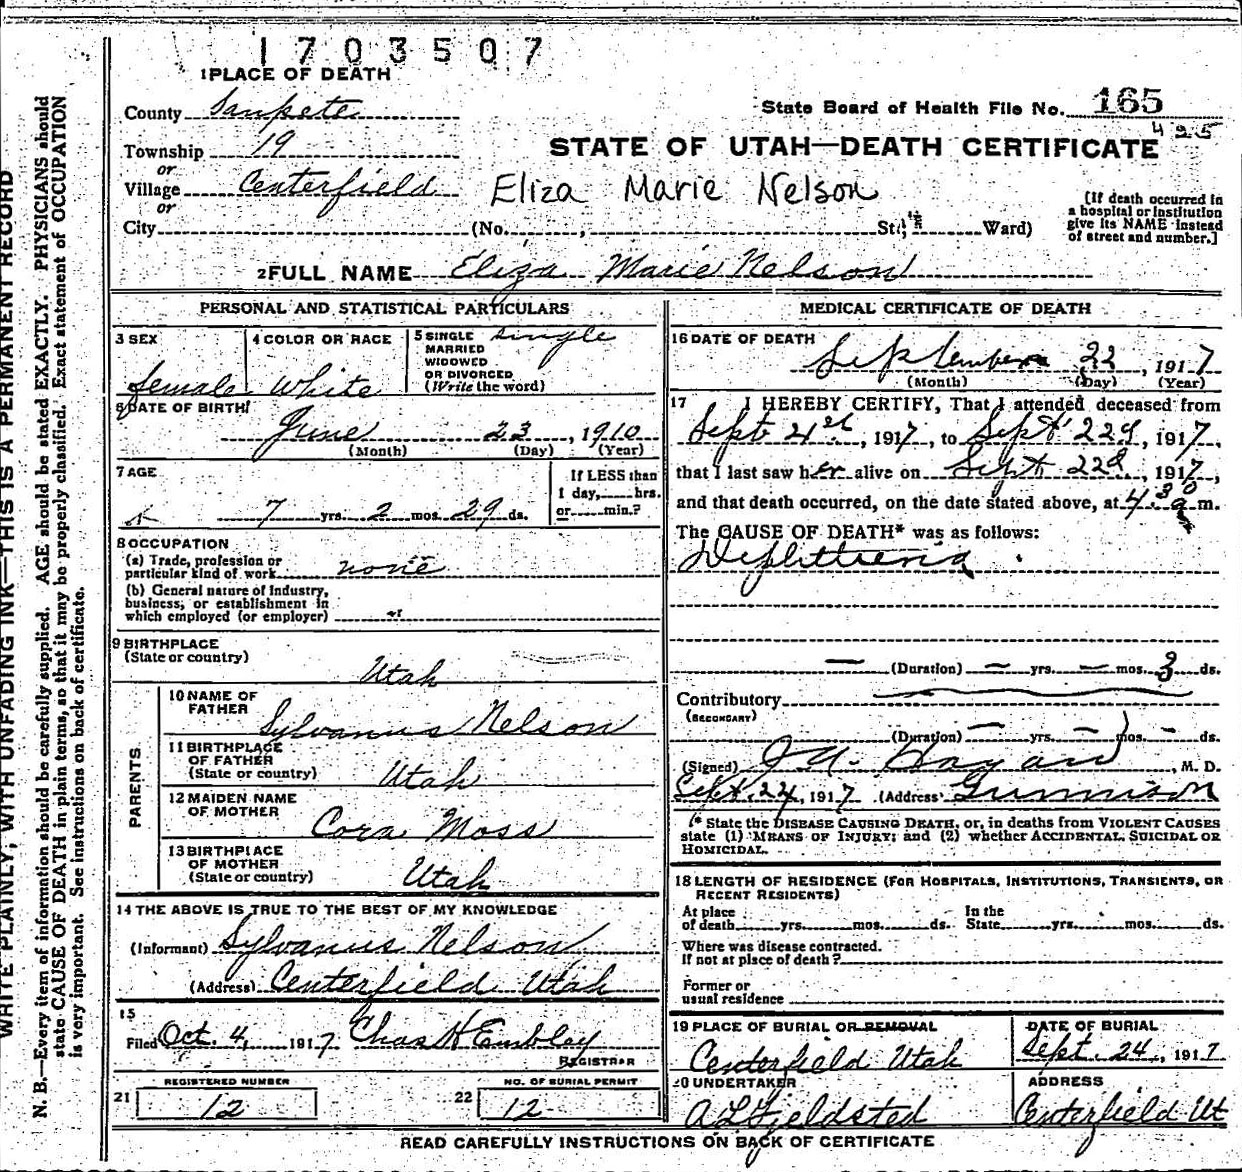 1703507
1 PLACE OF DEATH
County Sanpete
State Board of Health File No. 165
425
Township 19
STATE OF UTAH—DEATH CERTIFICATE
or
Village Centerfield
Eliza Marie Nelson
or
City (No. , St.; Ward)
[If death occurred in
a hospital or institution
give its NAME instead
of street and number.]
2 FULL NAME Eliza Marie Nelson
PERSONAL AND STATISTICAL PARTICULARS
3 SEX
female
4 COLOR OR RACE
White
5 SINGLE
MARRIED
WIDOWED
OR DIVORCED
(Write the word)
single
6 DATE OF BIRTH
June 23, 1910
(Month) (Day) (Year)
7 AGE
7 yrs. 2 mos. 29 ds.
If LESS than
1 day, hrs.
or min.?
8 OCCUPATION
(a) Trade, profession or
particular kind of work none
(b) General nature of Industry,
business, or establishment in
which employed (or employer)
9 BIRTHPLACE
(State or country)
Utah
PARENTS
10 NAME OF
FATHER
Sylvanus Nelson
11 BIRTHPLACE
OF FATHER
(State or country)
Utah
12 MAIDEN NAME
OF MOTHER
Cora Moss
13 BIRTHPLACE
OF MOTHER
(State or country)
Utah
14 THE ABOVE IS TRUE TO THE BEST OF MY KNOWLEDGE
(Informant) Sylvanus Nelson
(Address) Centerfield Utah
15
Filed Oct. 4, 1917 Chas H Embley
REGISTRAR
REGISTERED NUMBER
21 12
NO. OF BURIAL PERMIT
22 12
MEDICAL CERTIFICATE OF DEATH
16 DATE OF DEATH
September 22, 1917
(Month) (Day) (Year)
17 I HEREBY CERTIFY, That I attended deceased from
Sept 21st, 1917, to Sept 22d, 1917,
that I last saw her alive on Sept 22d, 1917,
and that death occurred, on the date stated above, at 4.30 a m.
The CAUSE OF DEATH* was as follows:
Diphtheria
(Duration) yrs. mos. 3 ds.
Contributory
(SECONDARY)
(Duration) yrs. mos. ds.
(Signed) J A Hagan, M. D.
Sept. 24, 1917 (Address) Gunnison
(* State the DISEASE CAUSING DEATH, or, in deaths from VIOLENT CAUSES
state (1) MEANS OF INJURY; and (2) whether ACCIDENTAL, SUICIDAL OR
HOMICIDAL.
18 LENGTH OF RESIDENCE (FOR HOSPITALS, INSTITUTIONS, TRANSIENTS, OR
RECENT RESIDENTS)
At place
of death yrs. mos. ds.
In the
State yrs. mos. ds.
Where was disease contracted.
If not at place of death?
Former or
usual residence
19 PLACE OF BURIAL OR REMOVAL
Centerfield Utah
DATE OF BURIAL
Sept. 24, 1917
20 UNDERTAKER
A L Fjeldsted
ADDRESS
Centerfield Ut
READ CAREFULLY INSTRUCTIONS ON BACK OF CERTIFICATE
WRITE PLAINLY, WITH UNFADING INK—THIS IS A PERMANENT RECORD
N. B.—Every item of information should be carefully supplied. AGE should be stated EXACTLY. PHYSICIANS should
state CAUSE OF DEATH in plain terms, so that it may be properly classified. Exact statement of OCCUPATION
is very important. See instructions on back of certificate.